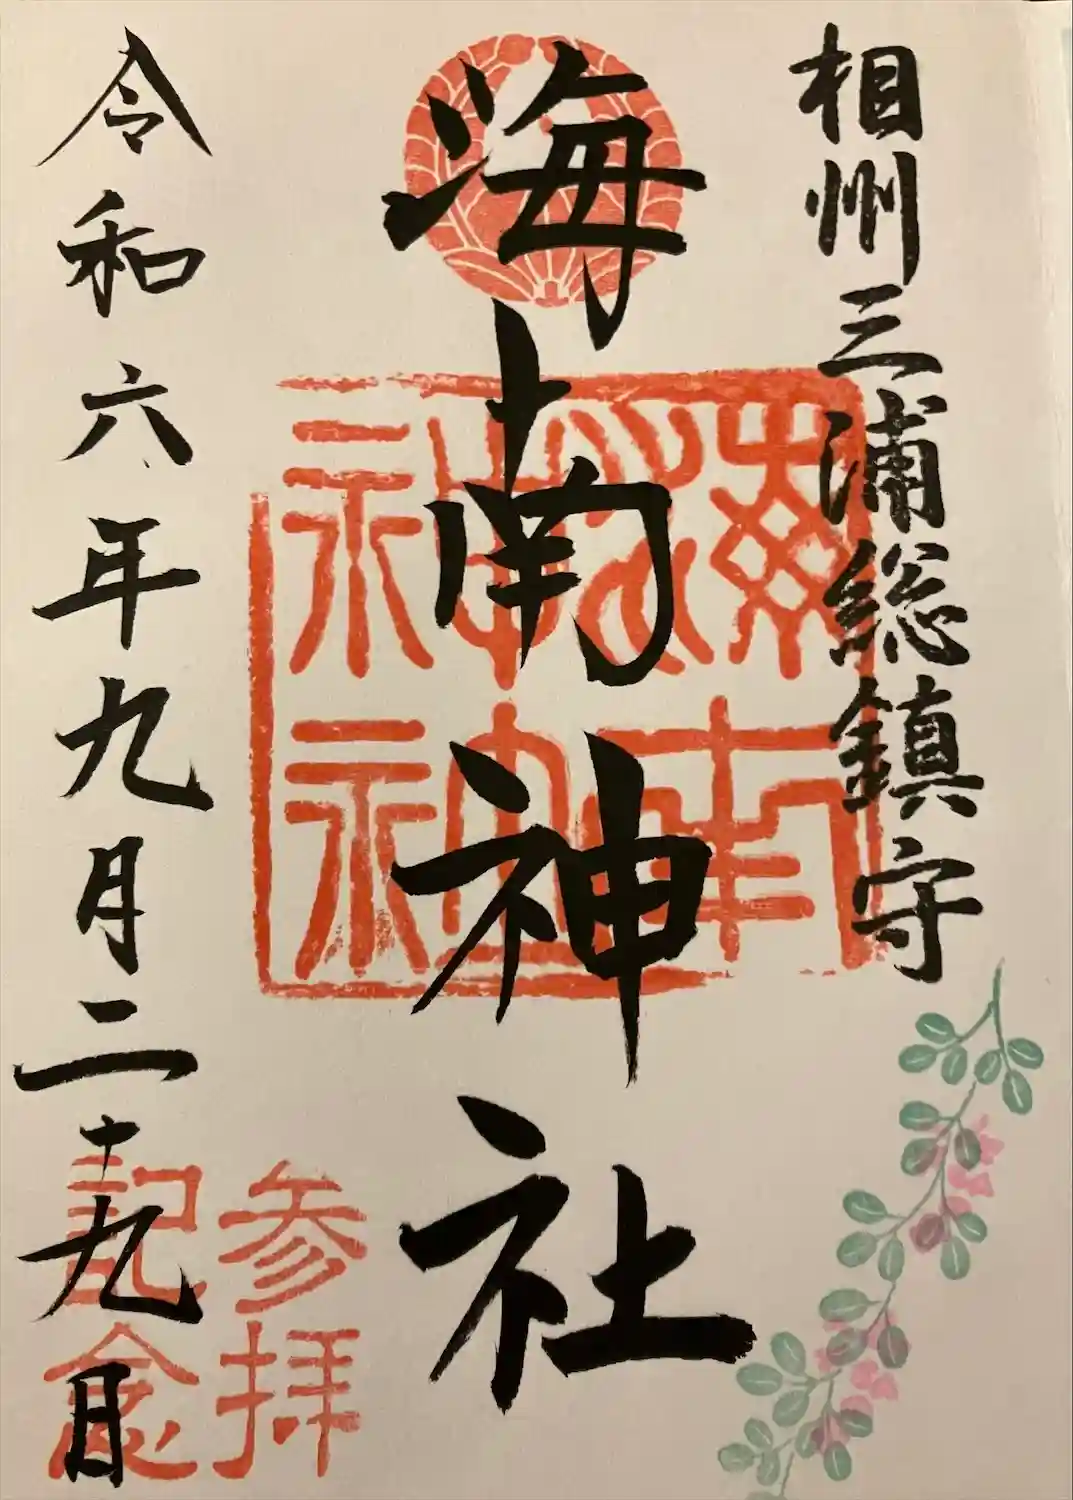 相州三浦総鎮守
海南神社
参拝
記念
令和六年九月二十九日